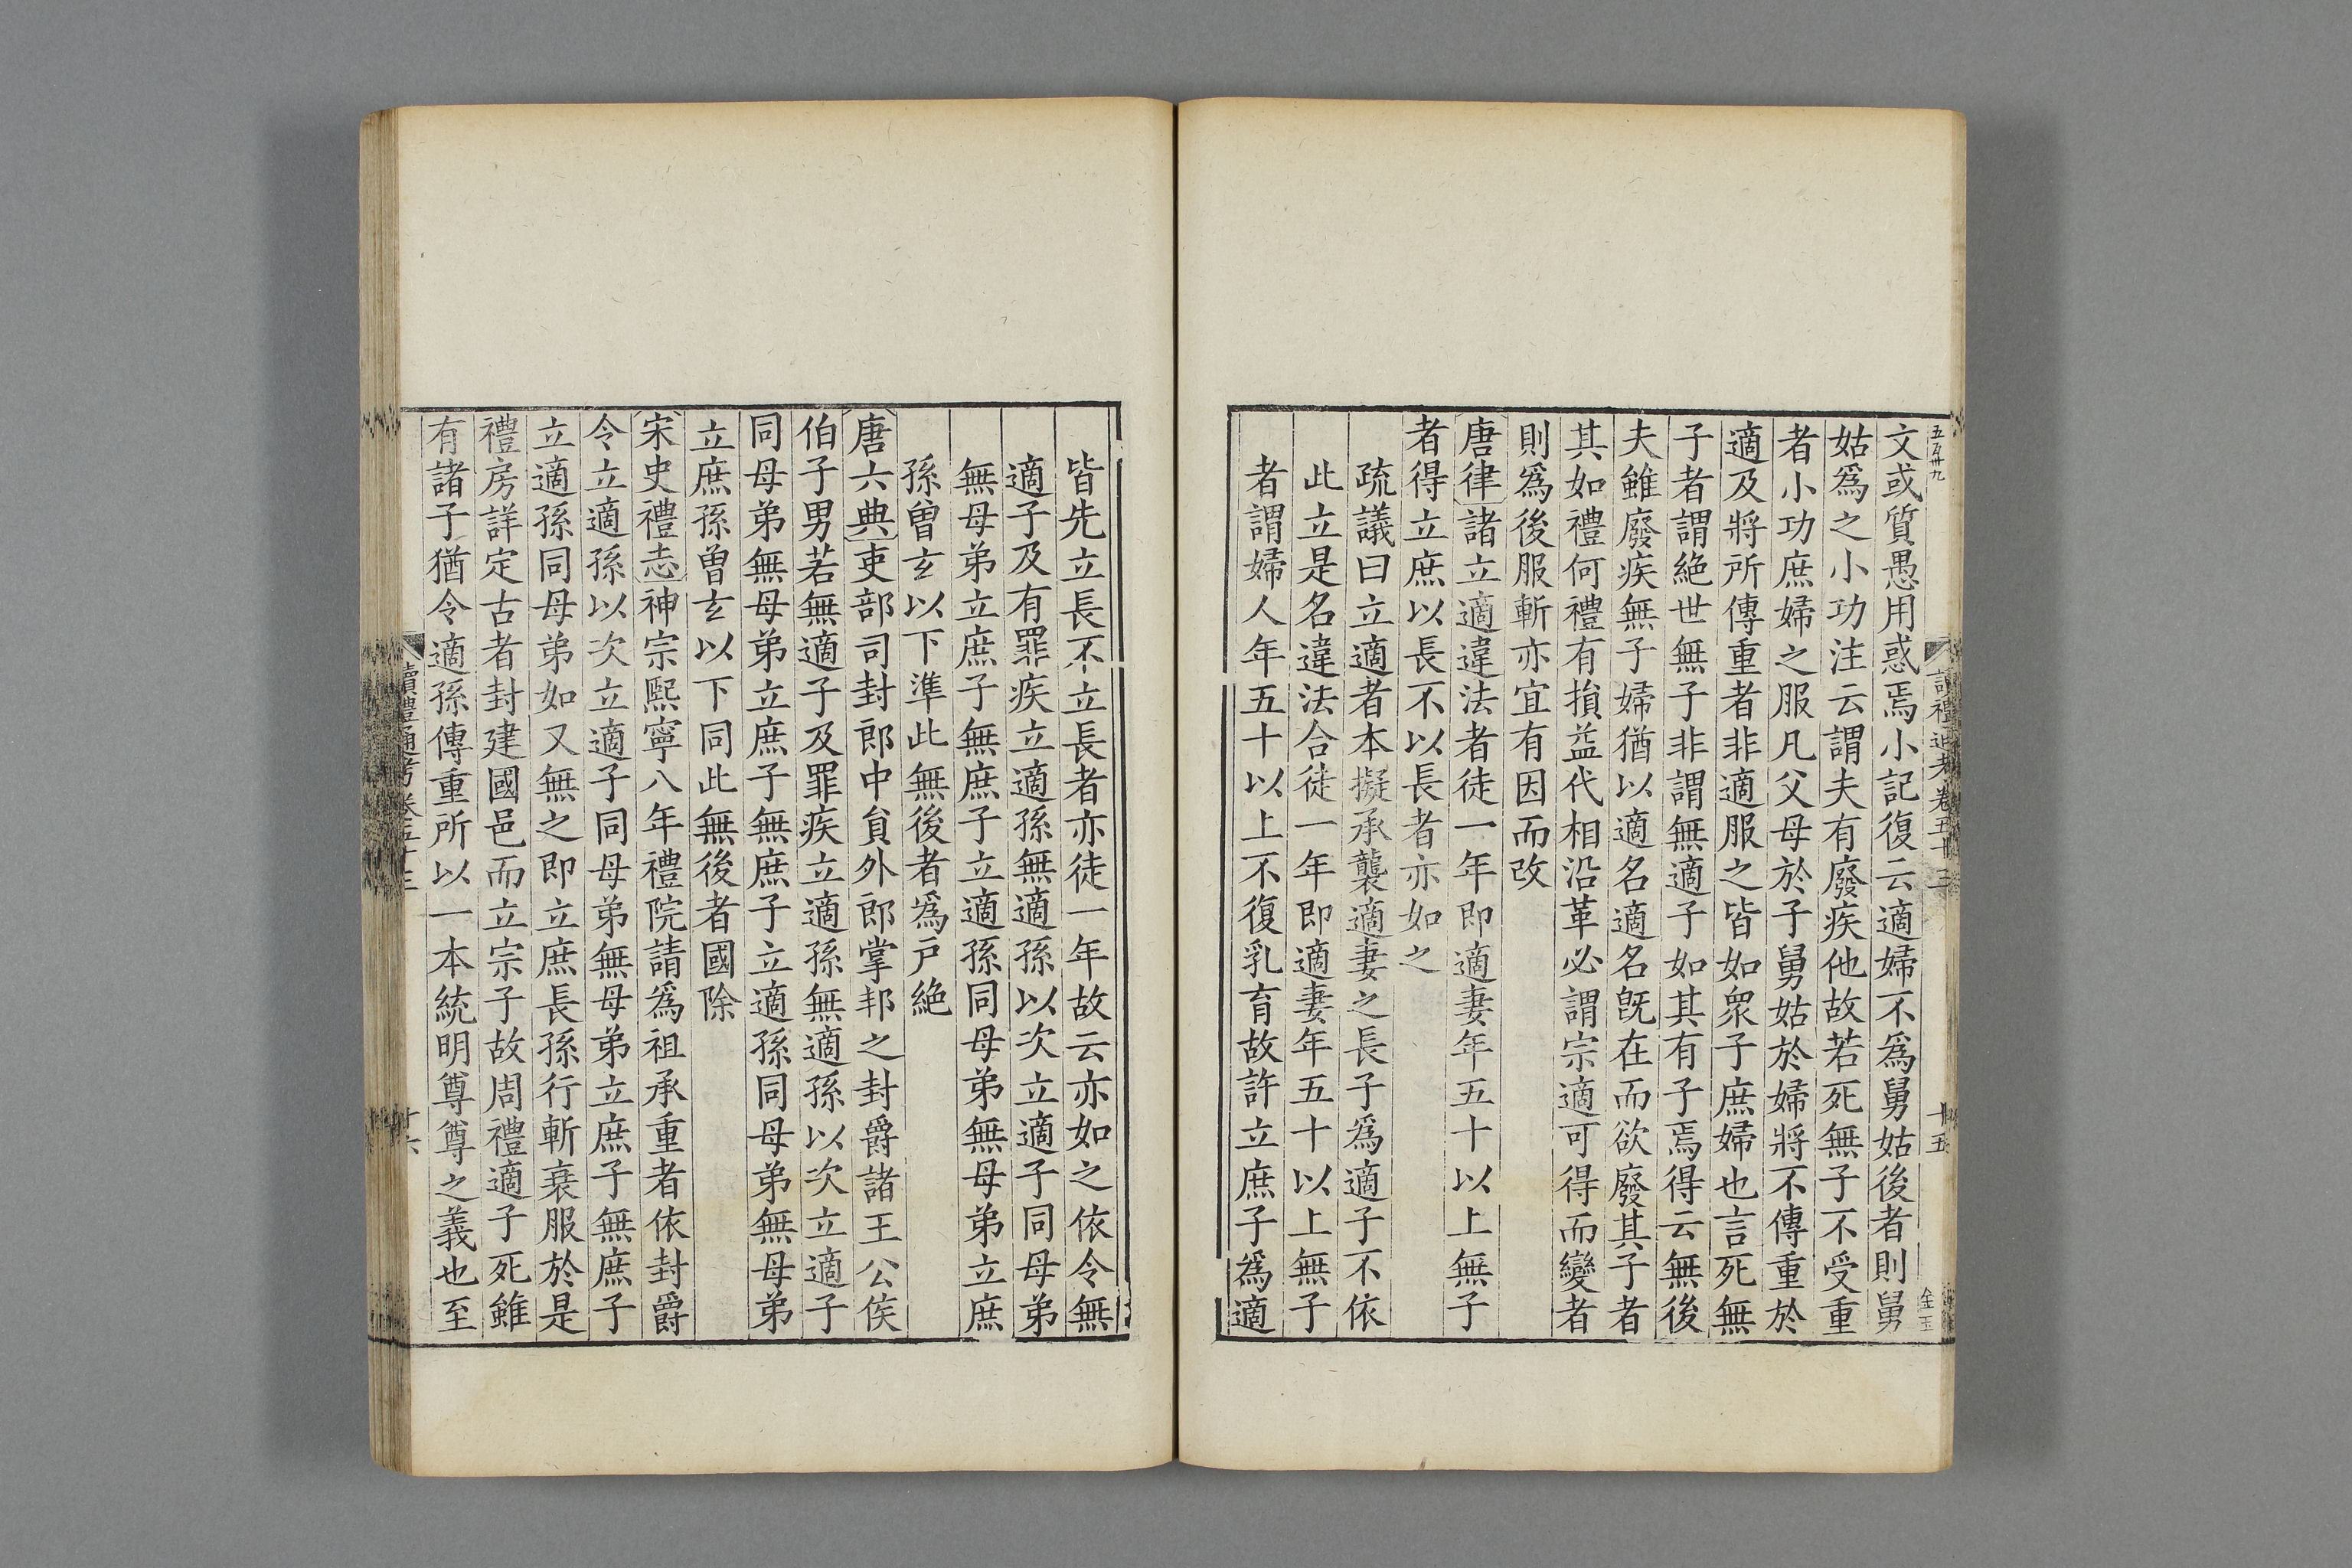 五百卅九
讀禮通考卷五十三
十五
金玉
文或質愚用惑焉小記復云適婦不爲舅姑後者則舅
姑爲之小功注云謂夫有廢疾他故若死無子不受重
者小功庶婦之服凡父母於子舅姑於婦將不傳重於
適及將所傳重者非適服之皆如衆子庶婦也言死無
子者謂絶世無子非謂無適子如其有子焉得云無後
夫雖廢疾無子婦猶以適名適名旣在而欲廢其子者
其如禮何禮有損益代相沿革必謂宗適可得而變者
則爲後服斬亦宜有因而改
唐律諸立適違法者徒一年即適妻年五十以上無子
者得立庶以長不以長者亦如之
疏議曰立適者本擬承襲適妻之長子爲適子不依
此立是名違法合徒一年即適妻年五十以上無子
者謂婦人年五十以上不復乳育故許立庶子爲適
皆先立長不立長者亦徒一年故云亦如之依令無
適子及有罪疾立適孫無適孫以次立適子同母弟
無母弟立庶子無庶子立適孫同母弟無母弟立庶
孫曾玄以下準此無後者爲戶絶
唐六典吏部司封郎中貟外郎掌邦之封爵諸王公侯
伯子男若無適子及罪疾立適孫無適孫以次立適子
同母弟無母弟立庶子無庶子立適孫同母弟無母弟
立庶孫曾玄以下同此無後者國除
宋史禮志神宗熙寧八年禮院請爲祖承重者依封爵
令立適孫以次立適子同母弟無母弟立庶子無庶子
立適孫同母弟如又無之即立庶長孫行斬衰服於是
禮房詳定古者封建國邑而立宗子故周禮適子死雖
有諸子猶令適孫傳重所以一本統明尊尊之義也至
讀禮通考卷五十三
十六